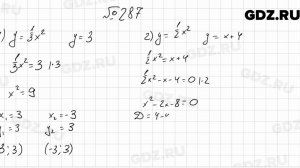 GDZ.RU
№ 287
y = 1/3 x² y = 3
1/3 x² = 3 | ·3
x² = 9
x₁ = 3 x₂ = -3
y₁ = 3 y₂ = 3
(3; 3) (-3; 3)
2) y = 1/2 x² y = x + 4
1/2 x² = x + 4
1/2 x² - x - 4 = 0 | ·2
x² - 2x - 8 = 0
D = 4 -
GDZ.RU